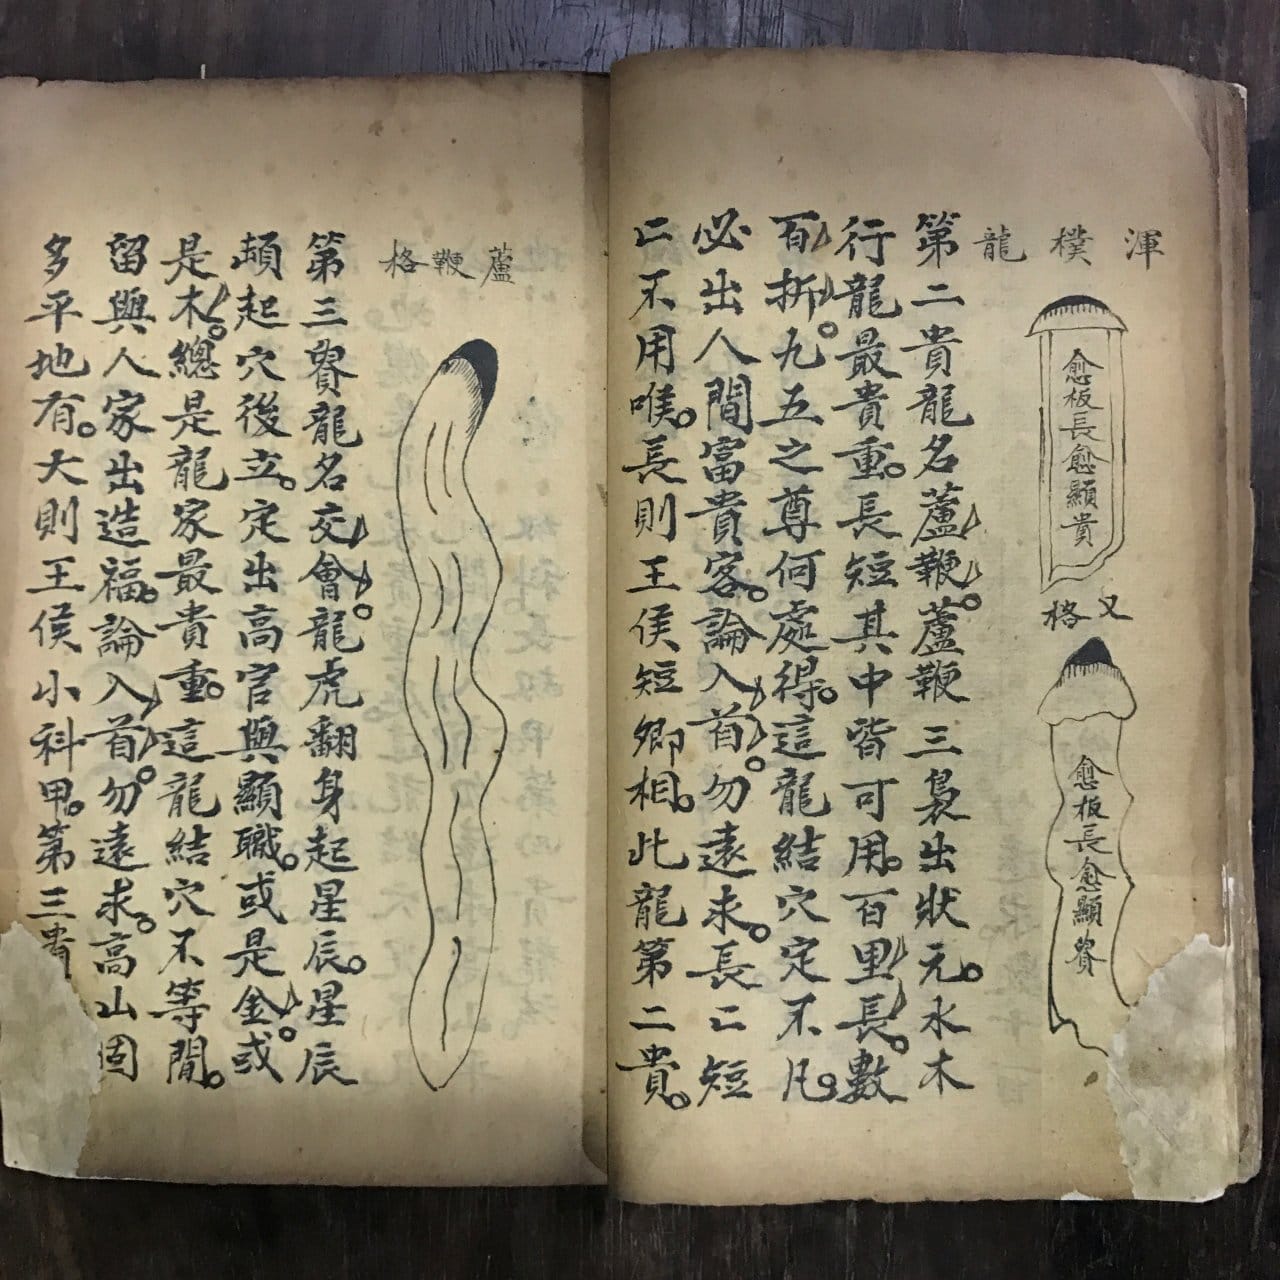 渾樸龍
愈板長愈顯貴
又格
愈板長愈顯貴
第二貴龍名蘆鞭。蘆鞭三裊出狀元。水木
行龍最貴重。長短其中皆可用。百里長。數
百折。九五之尊何處得。這龍結穴定不凡。
必出人間富貴客。論入首。勿遠求。長二短
二不用喉。長則王侯短卿相。此龍第二貴。
蘆鞭格
第三貴龍名交會。龍虎翻身起星辰。星辰
頓起穴後立。定出高官與顯職。或是金。或
是木。總是龍家最貴重。這龍結穴不等閒。
留與人家出造福。論入首。勿遠求。高山固
多平地有。大則王侯小科甲。第三貴